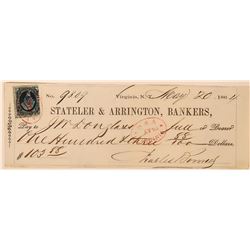 No. 9869 Virginia, N. May 20 1864
STATELER & ARRINGTON, BANKERS,
Pay to J W Douglass or Bearer
One Hundred & three 88/100 Dollars
$103 88
Charles Bonner